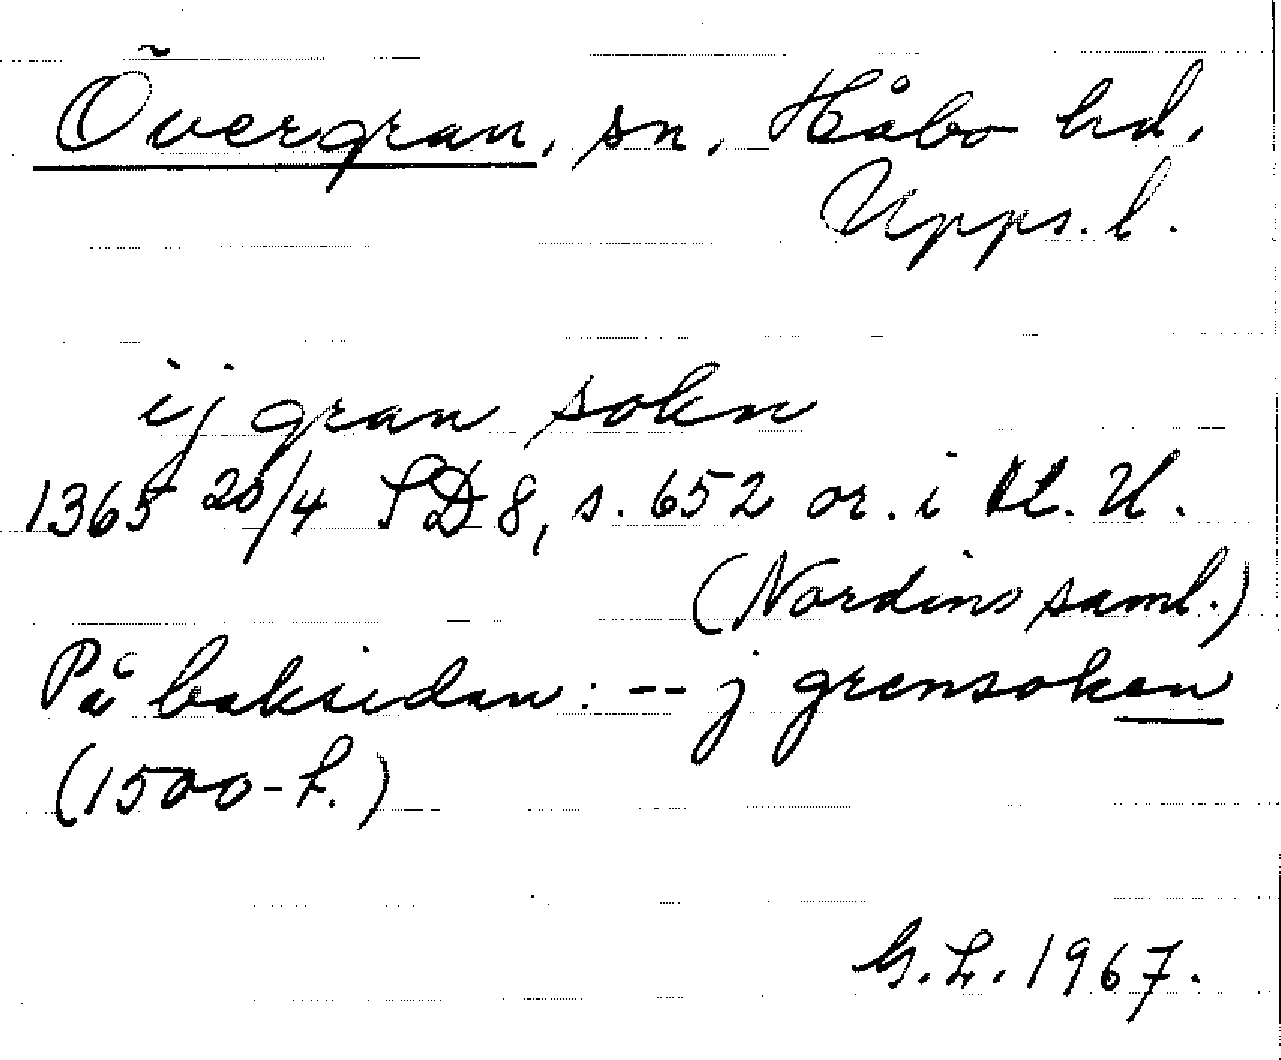 Övergran, sn, Håbo hd,
Upps. l.
ij gran sokn
1365 20/4 SD 8, s. 652 or. i
(Nordins saml.)
På baksidan: -- j grensoken
(1500-t.)
1967.